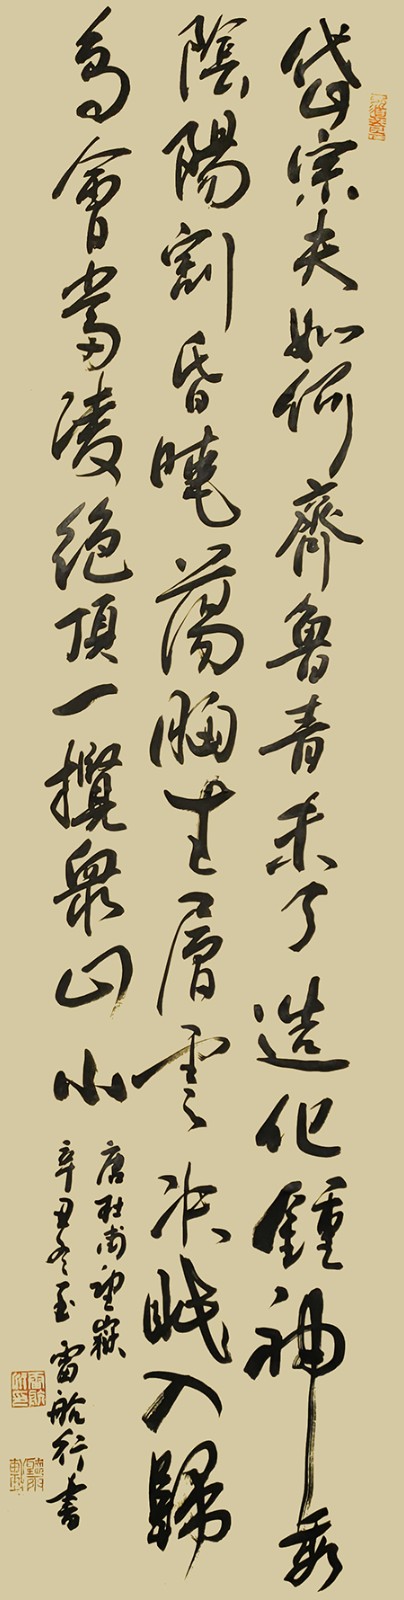 岱宗夫如何齊魯青未了造化鍾神秀
陰陽割昏曉蕩胸生層雲決眥入歸
鳥會當凌絕頂一攬衆山小
唐杜甫望嶽
辛丑冬至雷航行書